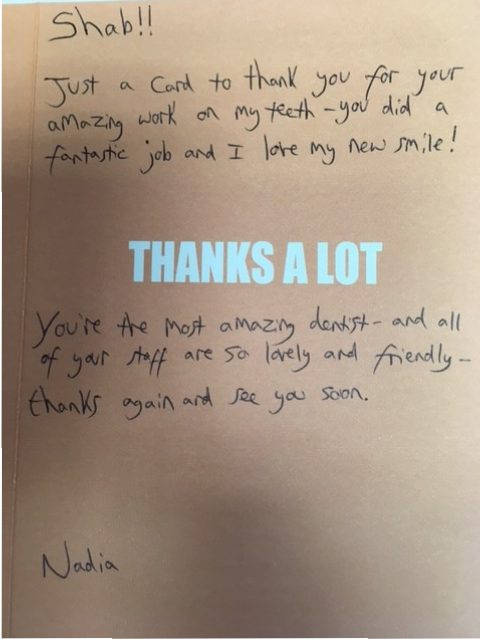 Shab!!
Just a Card to thank you for your
amazing work on my teeth - you did a
fantastic job and I love my new smile!
THANKS A LOT
You're the most amazing dentist - and all
of your staff are so lovely and friendly -
thanks again and see you soon.
Nadia